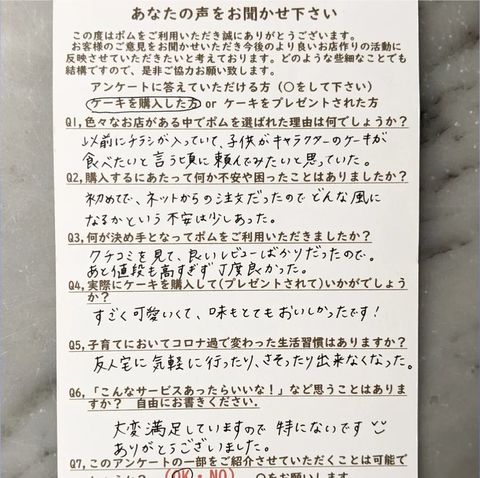 あなたの声をお聞かせ下さい
この度はボムをご利用いただき誠にありがとうございます。
お客様のご意見をお聞かせいただき今後のより良いお店作りの活動に
反映させていただきたいと考えております。どのような些細なことでも
結構ですので、是非ご協力お願い致します。
アンケートに答えていただける方(○をして下さい)
ケーキを購入した方 or ケーキをプレゼントされた方
Q1,色々なお店がある中でボムを選ばれた理由は何でしょうか?
以前にチラシが入っていて、子供がキャラクターのケーキが
食べたいと言う頃に頼んでみたいと思っていた。
Q2,購入するにあたって何か不安や困ったことはありましたか?
初めてで、ネットからの注文だったのでどんな風に
になるかという不安は少しあった。
Q3,何が決め手となってボムをご利用いただきましたか?
クチコミを見て、良いレビューばかりだったので。
あと値段も高すぎず丁度良かった。
Q4,実際にケーキを購入して(プレゼントされて)いかがでしょう
か?
すごく可愛いくて、味もとてもおいしかったです!
Q5,子育てにおいてコロナ過で変わった生活習慣はありますか?
友人宅に気軽に行ったり、さそったり出来なくなった。
Q6,「こんなサービスあったらいいな!」など思うことはありま
すか? 自由にお書きください.
大変満足していますので特にないです
ありがとうございました。
Q7,このアンケートの一部をご紹介させていただくことは可能で
しょうか? (OK・NO) ○をお願いします